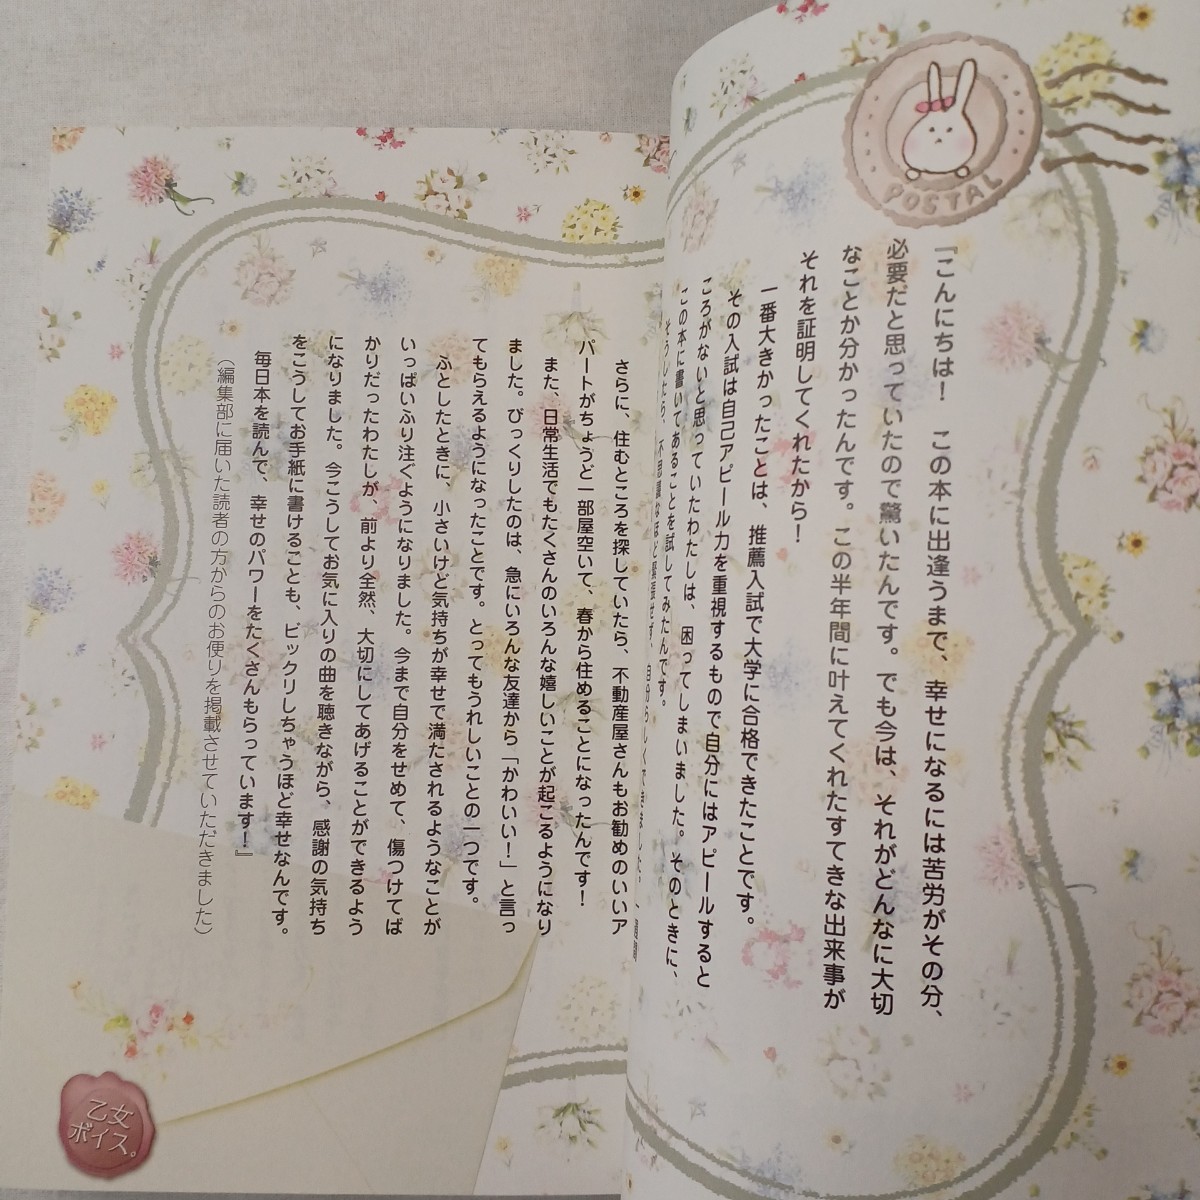 POSTAL
『こんにちは！　この本に出逢うまで、幸せになるには苦労がその分、
必要だと思っていたので驚いたんです。でも今は、それがどんなに大切
なことか分かったんです。この半年間に叶えてくれたすてきな出来事が
それを証明してくれたから！
一番大きかったことは、推薦入試で大学に合格できたことです。
その入試は自己アピール力を重視するもので自分にはアピールすると
ころがないと思っていたわたしは、困ってしまいました。そのときに、
この本に書いてあることを試してみたんです。
そうしたら、不思議なほど緊張せず、自分らしくできました。
さらに、住むところを探していたら、不動産屋さんもお勧めのいいア
パートがちょうど一部屋空いて、春から住めることになったんです！
また、日常生活でもたくさんのいろんな嬉しいことが起こるようになり
ました。びっくりしたのは、急にいろんな友達から「かわいい！」と言っ
てもらえるようになったことです。とってもうれしいことの一つです。
ふとしたときに、小さいけど気持ちが幸せで満たされるようなことが
いっぱいふり注ぐようになりました。今まで自分をせめて、傷つけてば
かりだったわたしが、前より全然、大切にしてあげることができるよう
になりました。今こうしてお気に入りの曲を聴きながら、感謝の気持ち
をこうしてお手紙に書けることも、ビックリしちゃうほど幸せなんです。
毎日本を読んで、幸せのパワーをたくさんもらっています！』
（編集部に届いた読者の方からのお便りを掲載させていただきました）
乙女
ボイス。